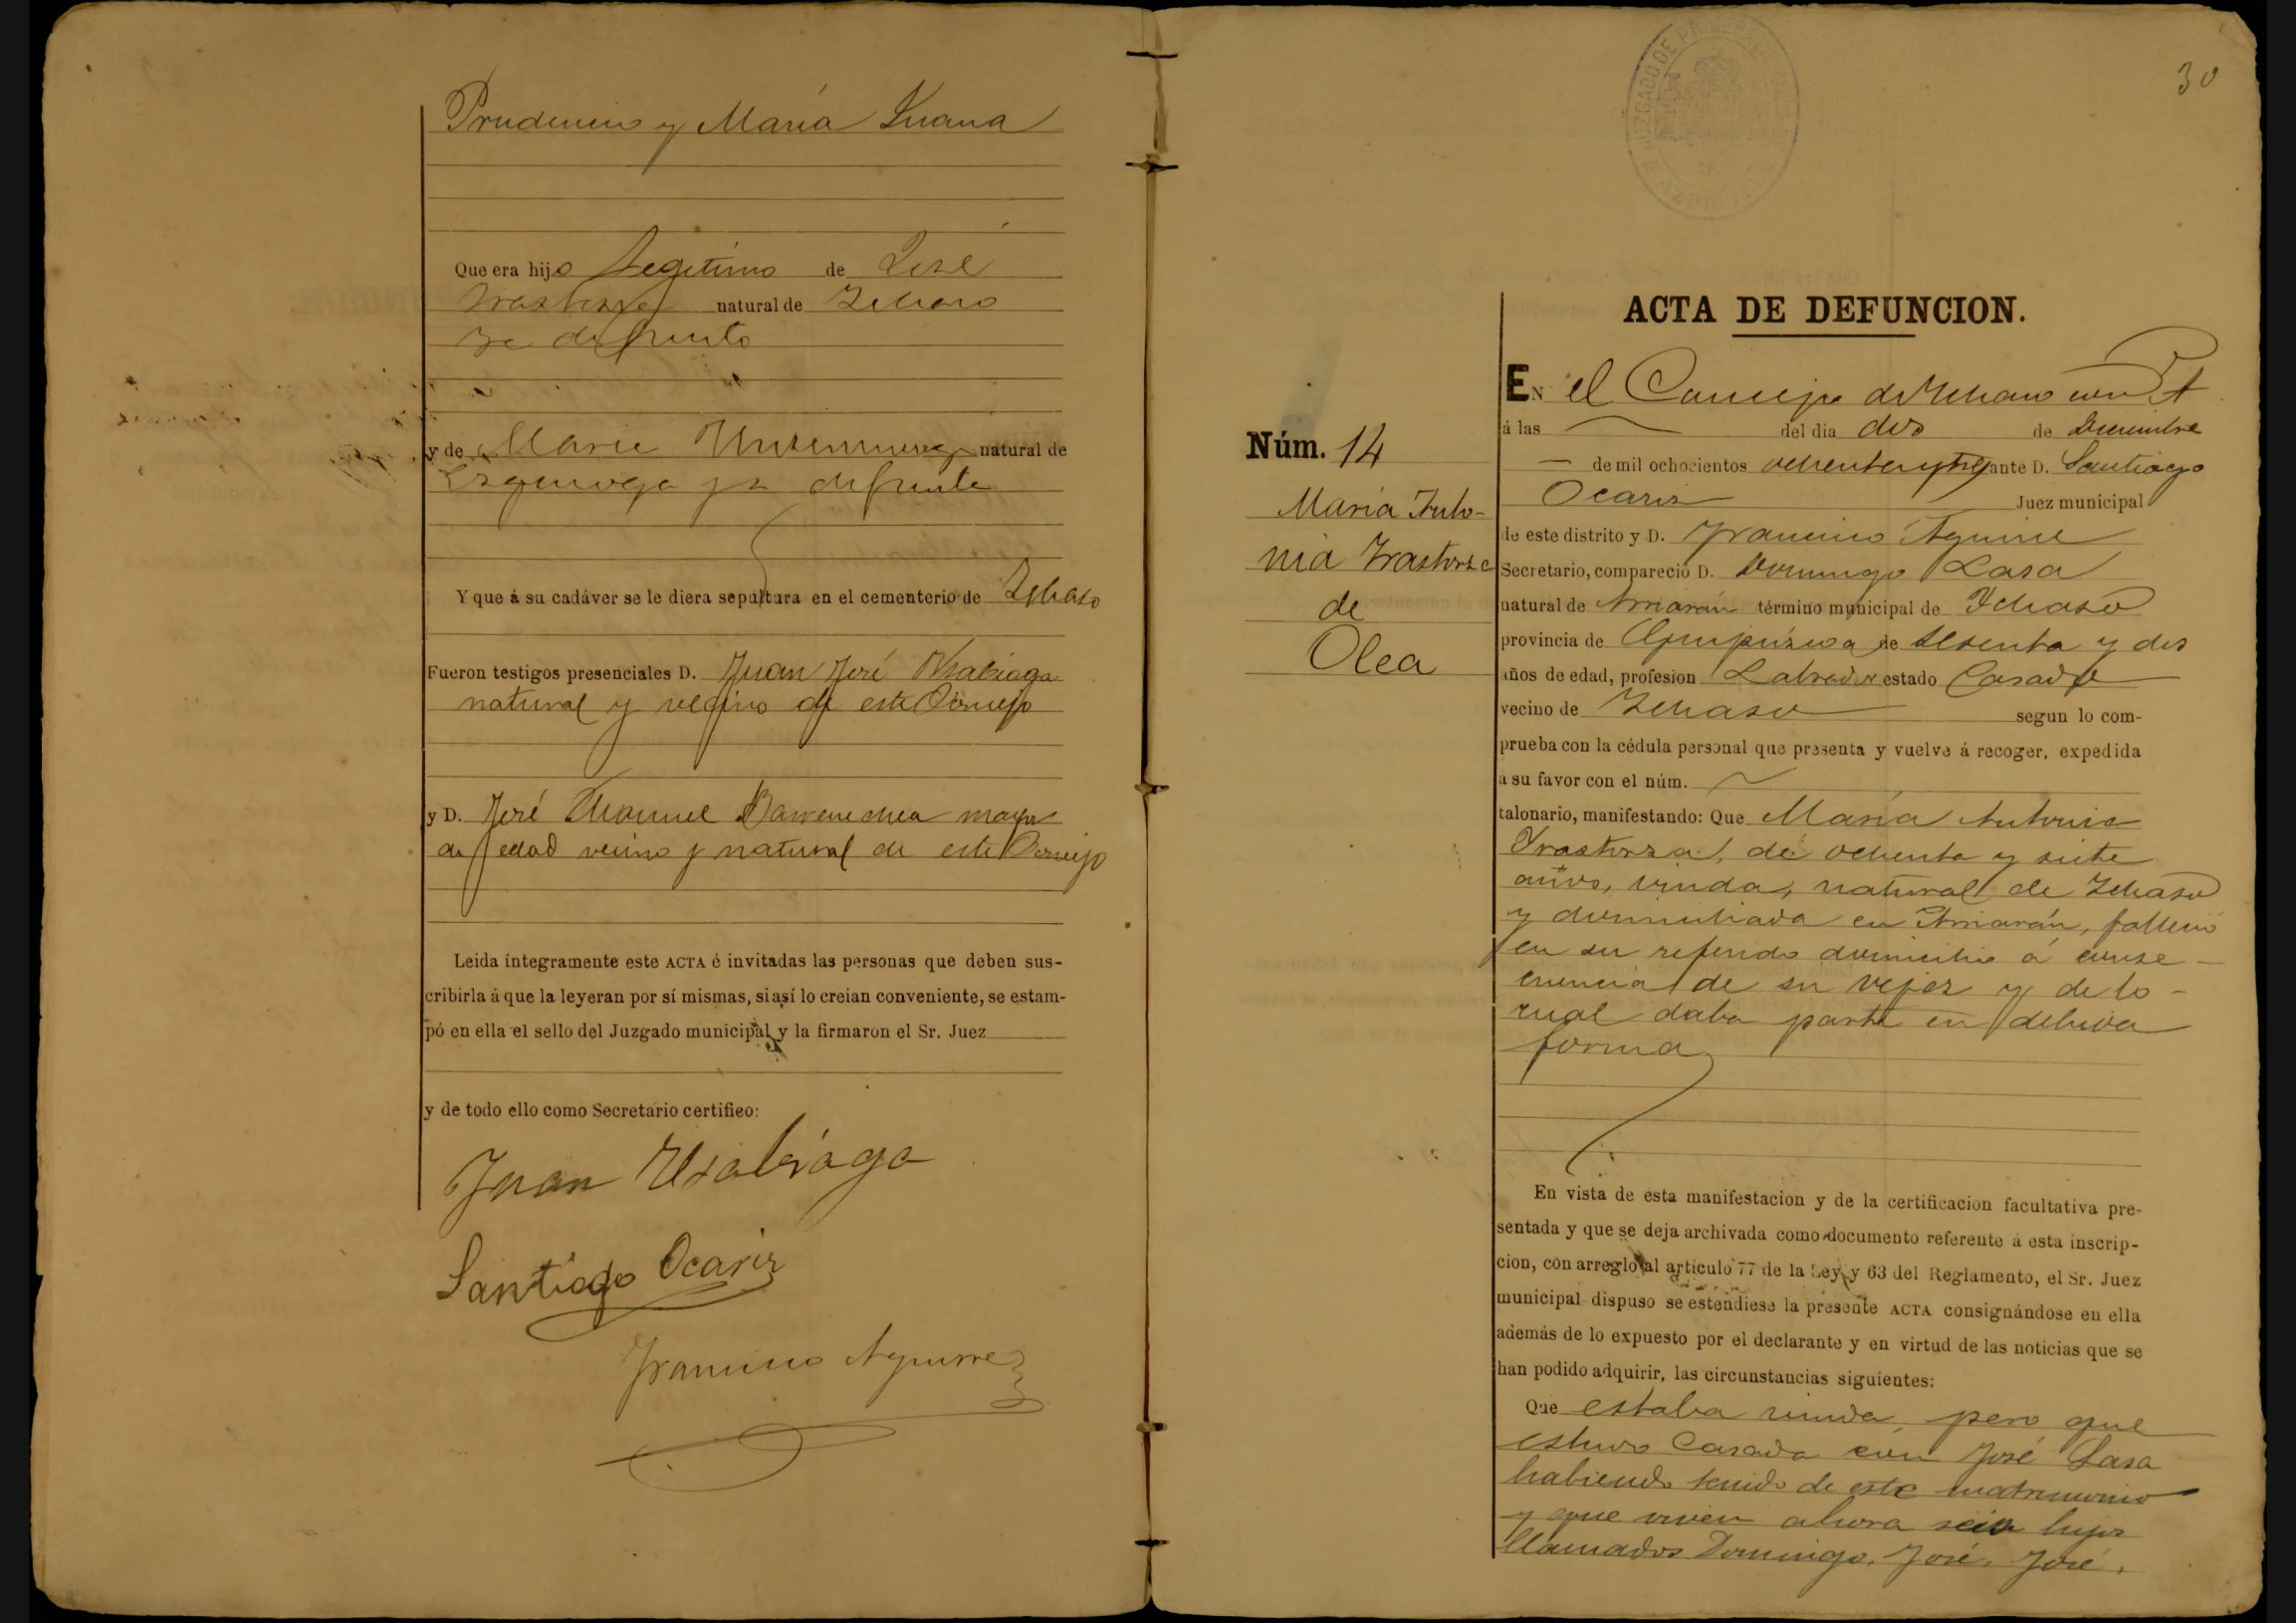 Prudencio y María Juana
Que era hijo legitimo de José
Irastorza natural de Ichaso
ya difunto
y de Maria natural de
Ezquioga ya difunta
Y que á su cadáver se le diera sepultura en el cementerio de Ichaso
Fueron testigos presenciales D. Juan José Usabiaga
natural y vecino de este Concejo
y D. José Manuel Barrenechea mayor
de edad vecino y natural de este Concejo
Leida íntegramente este ACTA é invitadas las personas que deben sus-
cribirla á que la leyeran por sí mismas, si así lo creian conveniente, se estam-
pó en ella el sello del Juzgado municipal y la firmaron el Sr. Juez
y de todo ello como Secretario certifico:
Juan Usabiaga
Santiago Ocariz
Francisco Aguirre
30
JUZGADO DE PRIMERA
ACTA DE DEFUNCION.
Núm. 14
Maria Anto-
nia Irastorza
de
Olea
EN el Concejo de Ichaso
á las del dia dos de Diciembre
de mil ochocientos ochenta y tres ante D. Santiago
Ocariz Juez municipal
de este distrito y D. Francisco Aguirre
Secretario, compareció D. Domingo Lasa
natural de Arriarán término municipal de Ichaso
provincia de Guipúzcoa de sesenta y dos
años de edad, profesion Labrador estado Casado
vecino de Ichaso segun lo com-
prueba con la cédula personal que presenta y vuelve á recoger, expedida
á su favor con el núm.
talonario, manifestando: Que María Antonia
Irastorza, de ochenta y siete
años, viuda, natural de Ichaso
y domiciliada en Arriarán, falleció
en su referido domicilio á conse-
cuencia de su vejez y de lo-
cual daba parte en debida
forma
En vista de esta manifestacion y de la certificacion facultativa pre-
sentada y que se deja archivada como documento referente á esta inscrip-
cion, con arreglo al artículo 77 de la Ley y 63 del Reglamento, el Sr. Juez
municipal dispuso se estendiese la presente ACTA consignándose en ella
además de lo expuesto por el declarante y en virtud de las noticias que se
han podido adquirir, las circunstancias siguientes:
Que estaba viuda pero que
estuvo Casada con José Lasa
habiendo tenido de este matrimonio
y que viven ahora seis hijos
llamados Domingo, José, José,